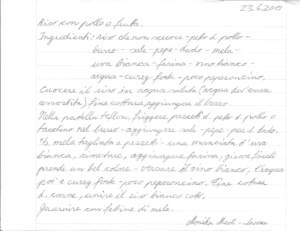 23.6.2011
Riso con pollo e frutta.
Ingredienti: riso che non scuoce - petto di pollo -
burro - sale - pepe - dado - mela -
uva bianca - farina - vino bianco -
acqua - curry forte - poco peperoncino.
Cuocere il riso in acqua salata (acqua deve essere
assorbita). Fine cottura aggiungere il burro
Nella padella teflon, friggere pezzetti di petto di pollo o
tacchino nel burro - aggiungere sale - pepe - poco di dado.
½ mela tagliata a pezzetti - una manciata d'uva
bianca, rimestare, aggiungere farina,
prende un bel colore - versare il vino bianco,
poi e curry forte - poco peperoncino. Fine cottura
di carne, unire il riso bianco cotto.
Guarnire con fettine di mela.